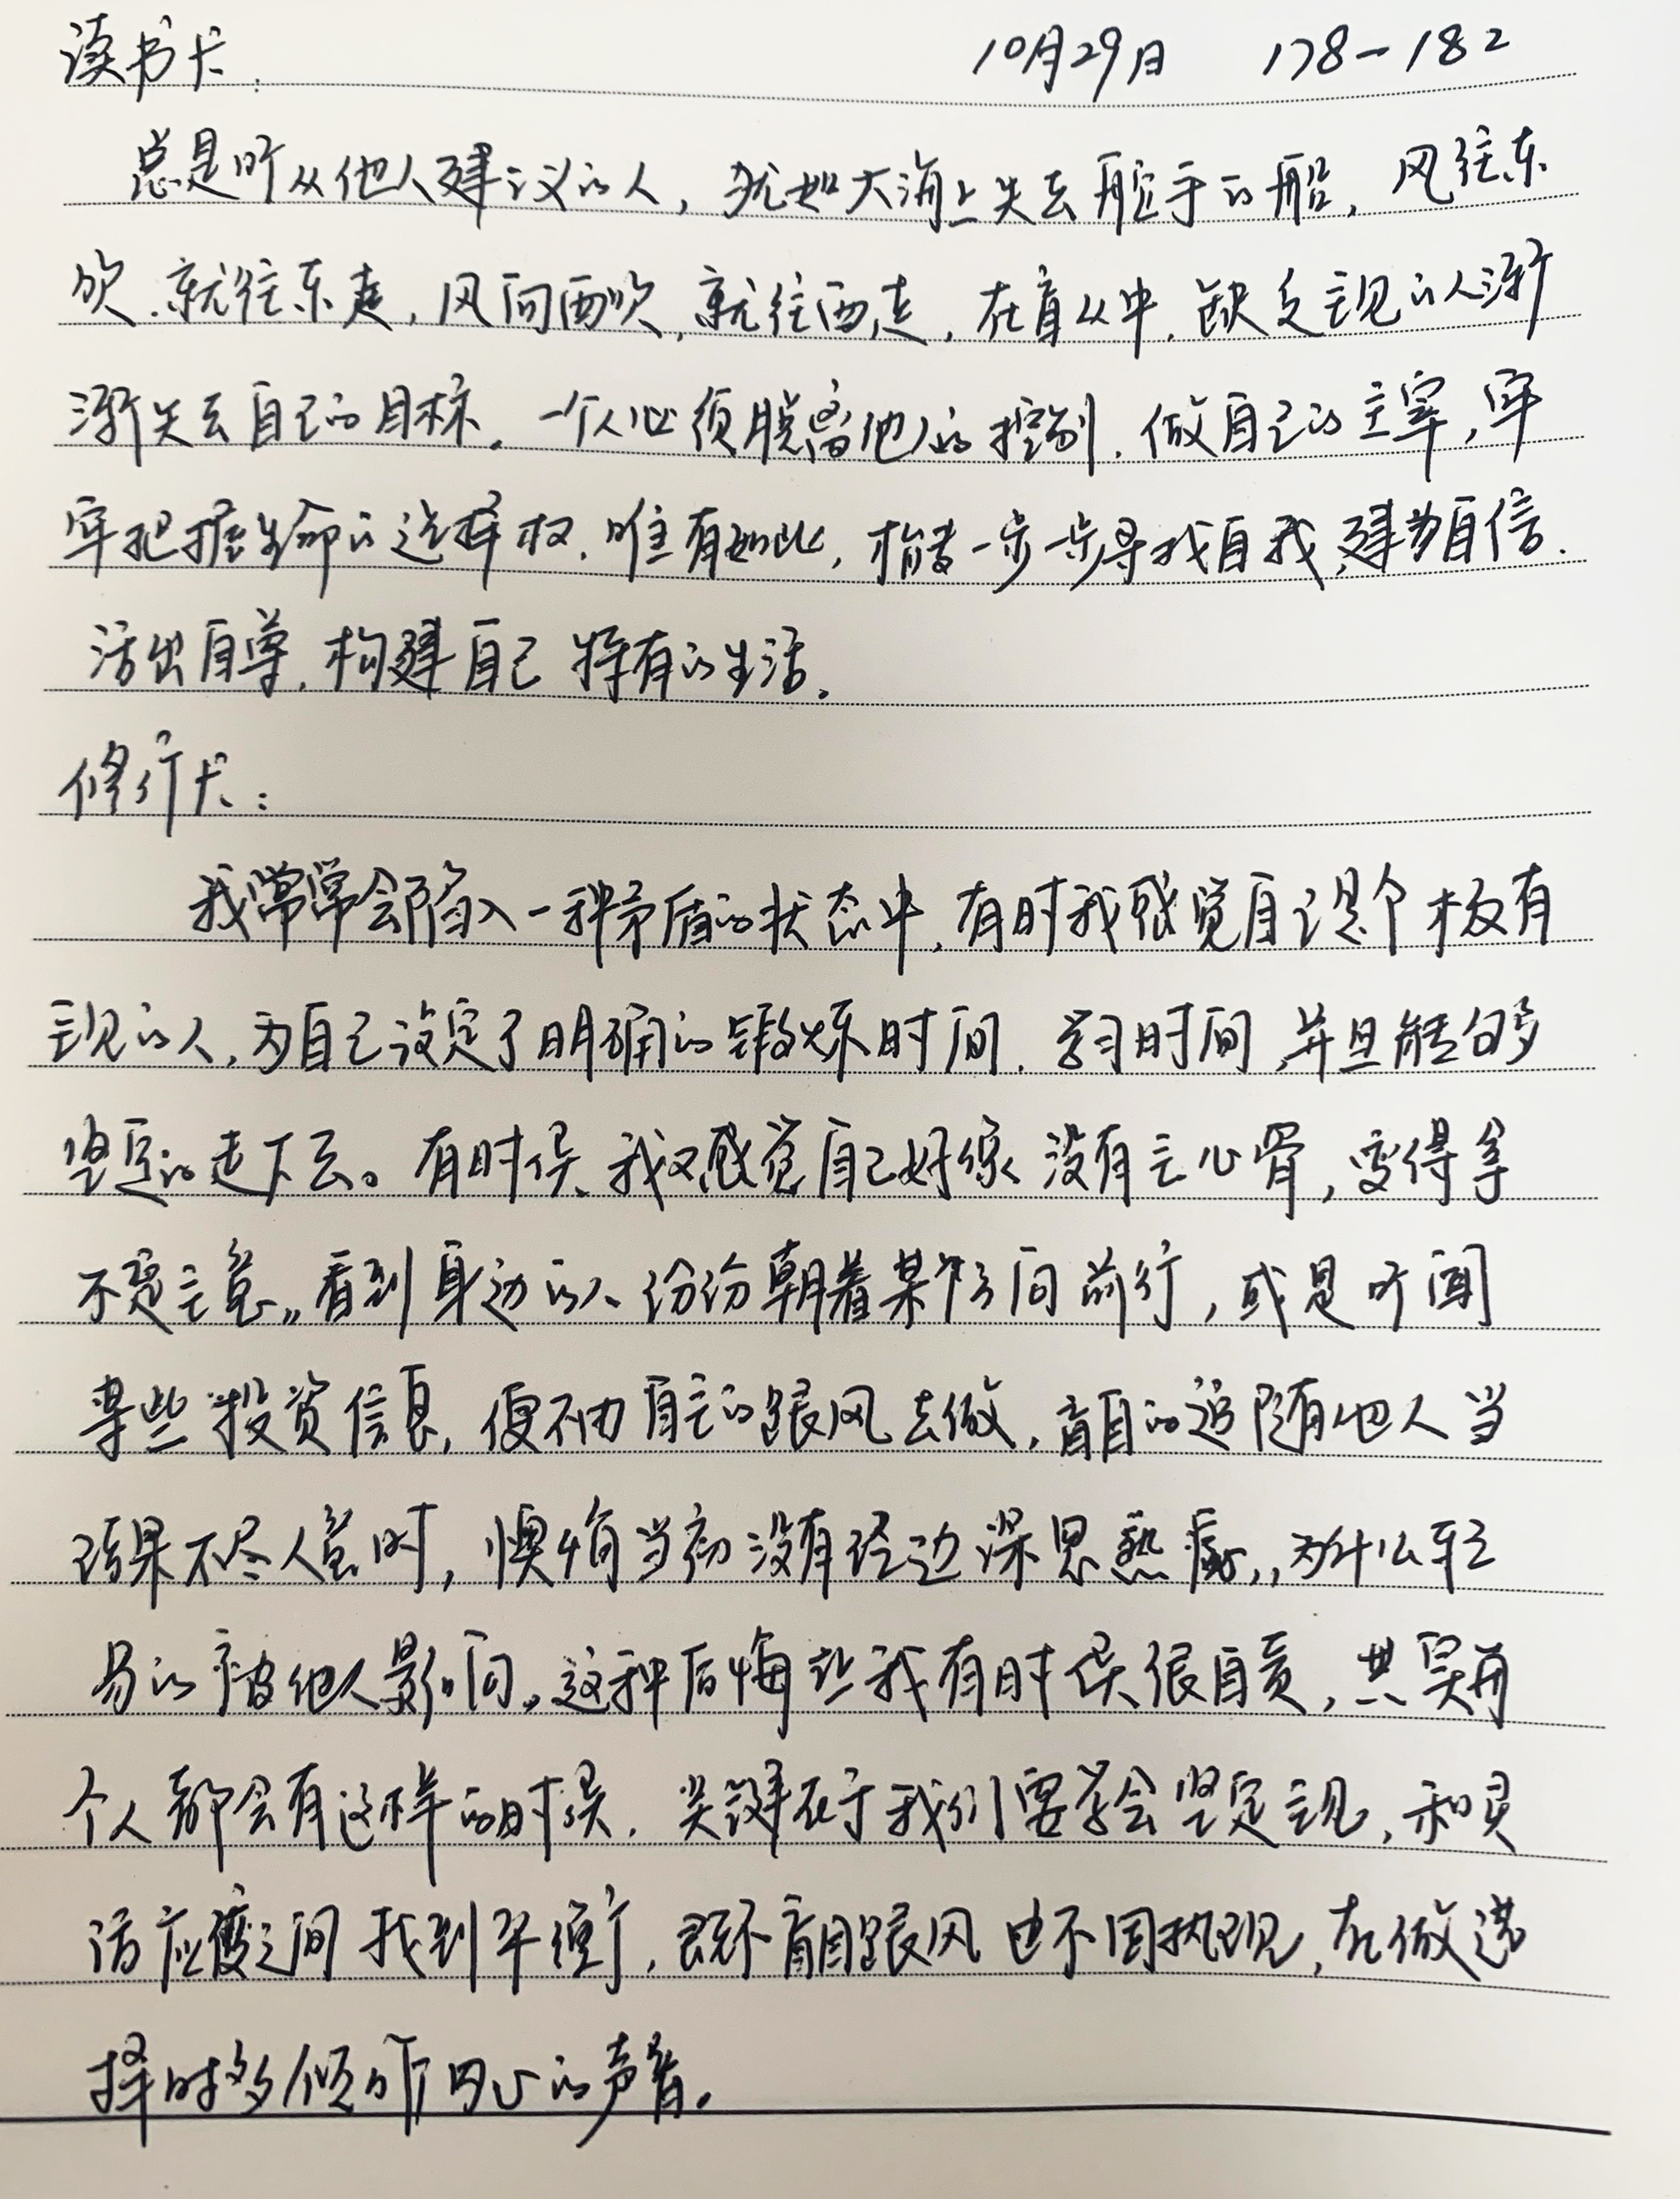 读书卡：
10月29日 178-182
总是听从他人建议的人，犹如大海上失去舵手的船，风往东
吹，就往东走，风向西吹，就往西走，在盲从中，缺乏主见的人渐
渐失去自己的目标。一个人必须脱离他人的控制，做自己的主宰，牢
牢把握生命的选择权，唯有如此，才能一步一步寻找自我，建立自信，
活出自尊，构建自己特有的生活。
修行卡：
我常常会陷入一种矛盾的状态中，有时我感觉自己是个极有
主见的人，为自己设定了明确的锻炼时间，学习时间，并且能够
坚定的走下去。有时候，我又感觉自己好像没有主心骨，变得拿
不定主意。看到身边的人份份朝着某个方向前行，或是听闻
某些投资信息，便不由自主的跟风去做，盲目的追随他人当
结果不尽人意时，懊悔当初没有经过深思熟虑，为什么轻
易的被他人影响。这种后悔让我有时候很自责，其实每
个人都会有这样的时候，关键在于我们要学会坚定主见，和灵
活应变之间找到平衡，既不盲目跟风也不固执己见，在做选
择时多倾听内心的声音。